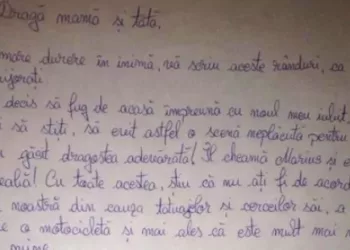 Dragă mamă și tată,
mare durere în inimă, vă scriu aceste rânduri, ca
îngrijorați
decis să fug de acasă împreună cu noul meu iubit,
să știți, să evit astfel o scenă neplăcută pentru
găsit dragostea adevărată! Îl cheamă Marius și e
Cu toate acestea, știu că nu ați fi de acord
noastră din cauza tatuajelor și cerceilor săi, a
e o motocicletă și mai ales că este mult mai
mine